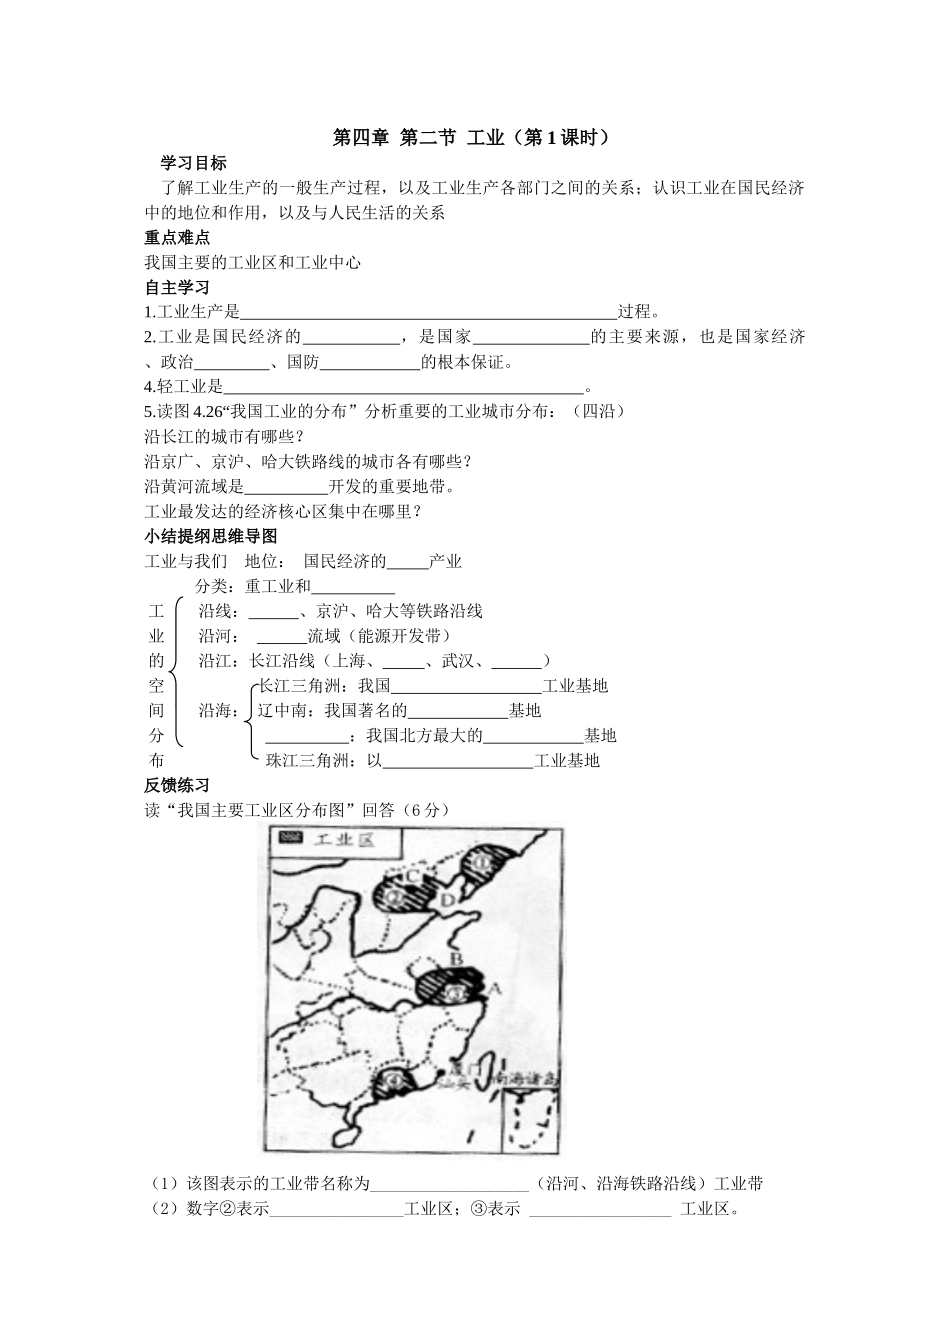 第四章 第二节 工业（第1课时）
学习目标
了解工业生产的一般生产过程，以及工业生产各部门之间的关系；认识工业在国民经济
中的地位和作用，以及与人民生活的关系
重点难点
我国主要的工业区和工业中心
自主学习
1.工业生产是______________________________过程。
2.工业是国民经济的____________，是国家______________的主要来源，也是国家经济
、政治_________、国防____________的根本保证。
4.轻工业是______________________________。
5.读图4.26“我国工业的分布”分析重要的工业城市分布：（四沿）
沿长江的城市有哪些？
沿京广、京沪、哈大铁路线的城市各有哪些？
沿黄河流域是__________开发的重要地带。
工业最发达的经济核心区集中在哪里？
小结提纲思维导图
工业与我们 地位： 国民经济的_____产业
分类：重工业和__________
工 沿线：______、京沪、哈大等铁路沿线
业 沿河： ______流域（能源开发带）
的 沿江：长江沿线（上海、_____、武汉、______）
空 长江三角洲：我国__________________工业基地
间 沿海： 辽中南：我国著名的____________基地
分 __________：我国北方最大的____________基地
布 珠江三角洲：以__________________工业基地
反馈练习
读“我国主要工业区分布图”回答（6分）
工业区
①
C
②
D
B
③ A
④
厦门
汕头 南海诸岛
（1）该图表示的工业带名称为___________________（沿河、沿海铁路沿线）工业带
（2）数字②表示________________工业区；③表示 _________________ 工业区。